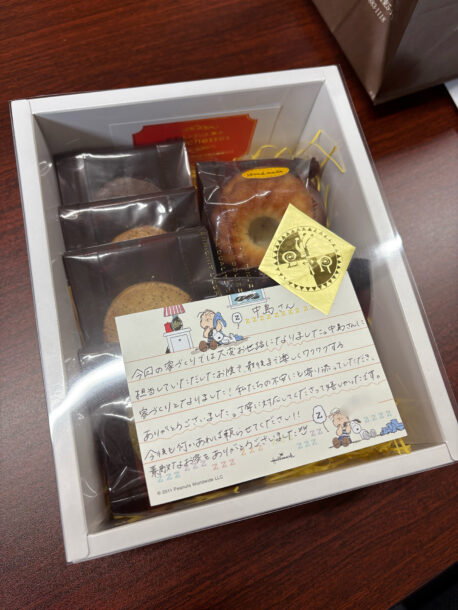 Hand made
中島さん
今回の家づくりでは大変お世話になりました。中島さんに
担当していただいたお陰で最後まで楽しくワクワクする
家づくりとなりました!私たちの不安にも寄り添っていただき、
ありがとうございました。丁寧に対応してくださって嬉しかったです。
今後も何かあれば頼らせてください!!
素敵なお家をありがとうございました!!
Z
Z
zzz
Hallmark
© 2011 Peanuts Worldwide LLC